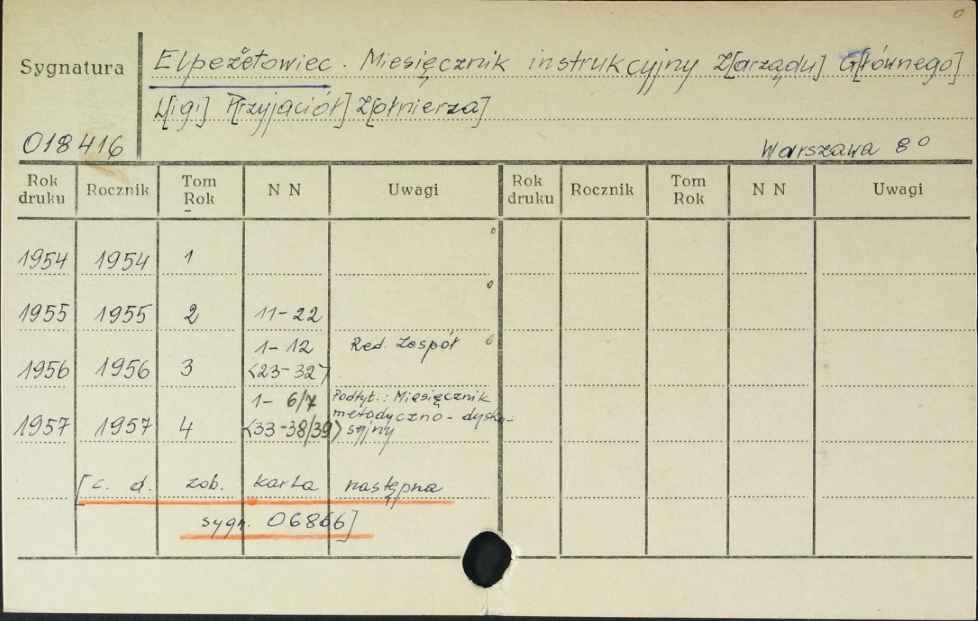 0
Sygnatura
Elpeżetowiec. Miesięcznik instrukcyjny Z[arządu] G[łównego]
L[igi] P[rzyjaciół] Ż[ołnierza]
018416
Warszawa 8°
Rok druku Rocznik Tom Rok N N Uwagi Rok druku Rocznik Tom Rok N N Uwagi
1954 1954 1
1955 1955 2 11-22
1956 1956 3 1-12 <23-32> Red. Zespół
1957 1957 4 1-6/7 <33-38/39> Podtyt.: Miesięcznik metodyczno-dysku-syjny
[c. d. zob. karta następna
sygn. 06866]